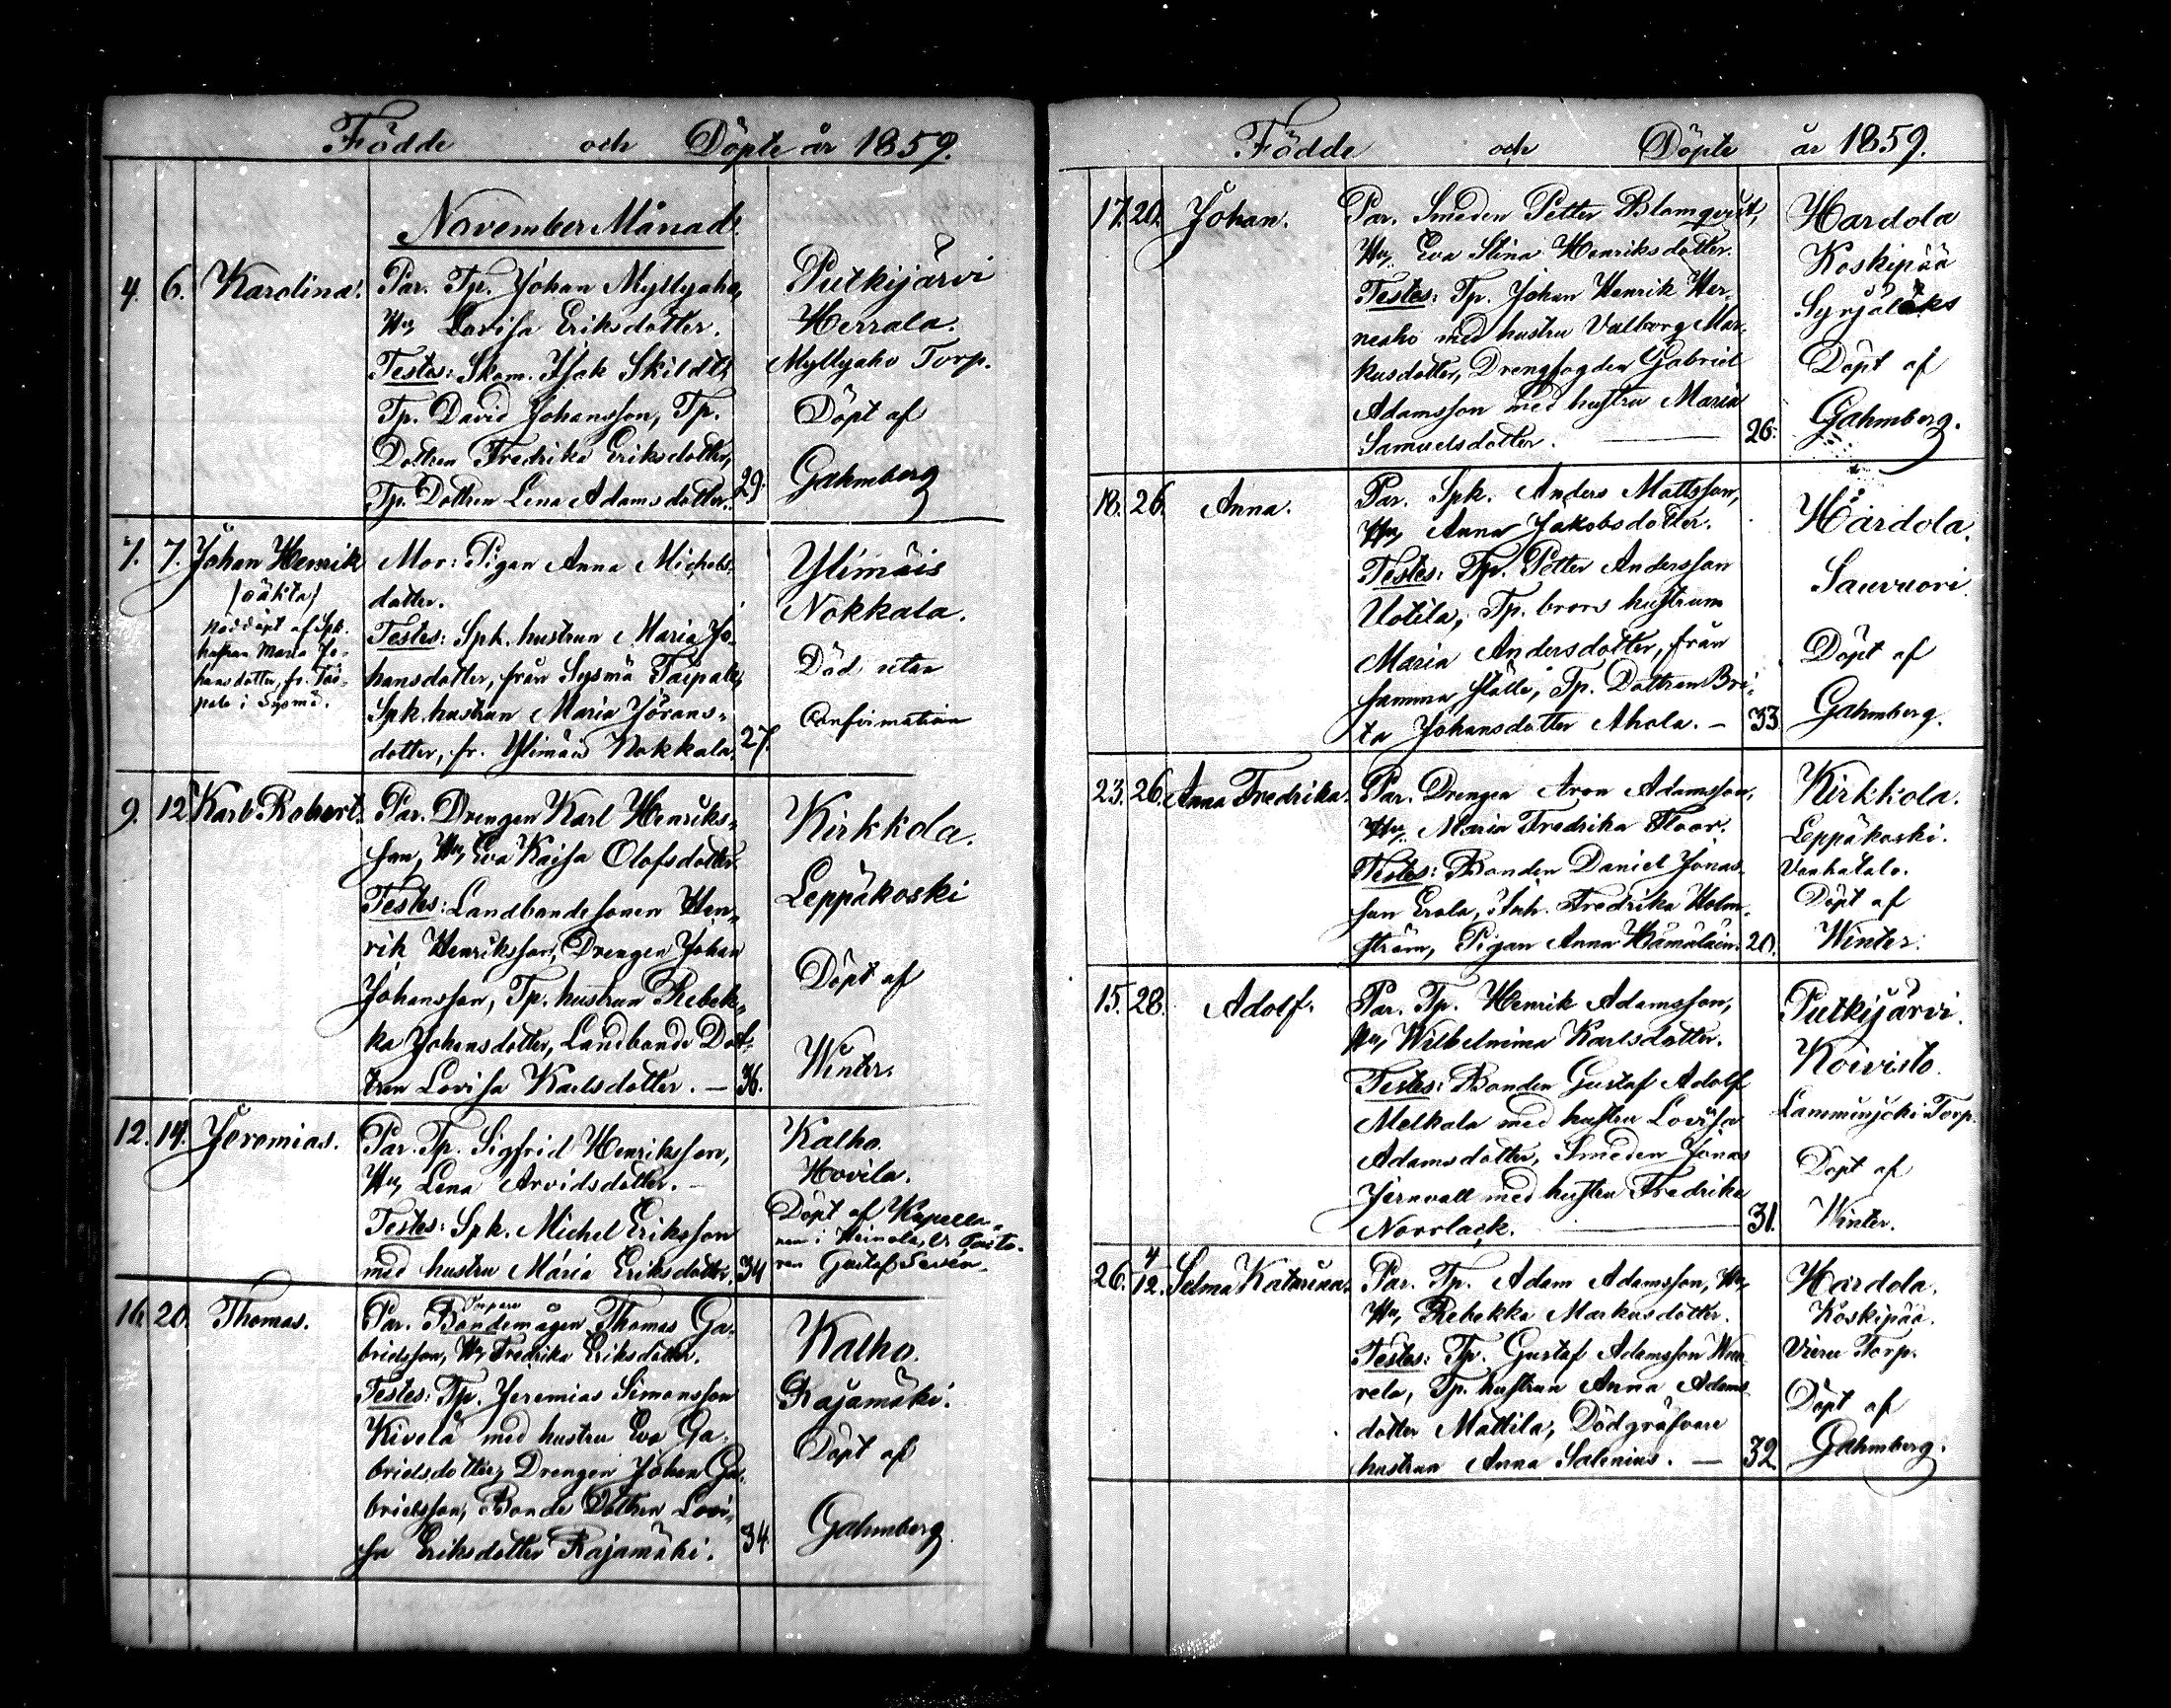 Födde och Döpte år 1859.
November Månad.
4. 6. Karolina.
Par. Tp. Johan Myllyaho,
Hu, Lovisa Eriksdotter.
Testes: Skom. Isak Skildt,
Tp. David Johansson, Tp.
Dottren Fredrika Eriksdotter,
Tp. Dottren Lena Adamsdotter. 29.
Putkijärvi
Herrala.
Myllyaho Torp.
Döpt af
Gahmberg
7. 7. Johan Henrik
(oäkta)
nöddöpt af Spk.
hustrun Maria Jo-
hansdotter, fr. Tai-
pale i Sysmä.
Mor: Pigan Anna Michels-
dotter.
Testes: Spk. hustrun Maria Jo-
hansdotter, från Sysmä Taipale,
Spk. hustrun Maria Jörans-
dotter, fr. Ylimäis Nokkala. 27.
Ylimäis
Nokkala.
Död utan
Confirmation
9. 12. Karl Robert.
Par. Drengen Karl Henriks-
son, Hu, Eva Kaisa Olofsdotter.
Testes: Landbondesonen Hen-
rik Henriksson, Drengen Johan
Johansson, Tp. hustrun Rebek-
ka Johansdotter, Landbonde Dot-
tren Lovisa Karlsdotter. — 36.
Kirkkola.
Leppäkoski
Döpt af
Winter.
12. 14. Jeremias.
Par. Tp. Sigfrid Henriksson,
Hu, Lena Arvidsdotter. —
Testes: Spk. Michel Eriksson
med hustru Maria Eriksdotter. 34
Kalho.
Hovila.
Döpt af Kapella-
nen i Heinola, V. Pasto-
ren Gustaf Levén.
16. 20. Thomas.
Par. Bondemågen Thomas Ga-
brielsson, Hu, Fredrika Eriksdotter.
Testes: Tp. Jeremias Simonsson
Kivelä med hustru Eva Ga-
brielsdotter, Drengen Johan Ga-
brielsson, Bonde Dottren Lovi-
sa Eriksdotter Rajamäki. 34
Kalho.
Rajamäki.
Döpt af
Gahmberg
Födde och Döpte år 1859.
17. 20. Johan.
Par. Smeden Petter Blomqvist,
Hu, Eva Stina Henriksdotter.
Testes: Tp. Johan Henrik Her-
neaho med hustru Valborg Mar-
kusdotter, Drengfogden Gabriel
Adamsson med hustru Maria
Samuelsdotter. — 26.
Hardola
Koskipää
Döpt af
Gahmberg.
18. 26. Anna.
Par. Spk. Anders Mattsson,
Hu, Anna Jakobsdotter.
Testes: Tp. Petter Andersson
Uotila, Tp. brors hustrun
Maria Andersdotter, från
samma ställe, Tp. Dottren Bri-
ta Johansdotter Ahola. — 33
Hårdola.
Sauvuori.
Döpt af
Gahmberg.
23. 26. Anna Fredrika.
Par. Drengen Aron Adamsson,
Hu, Maria Fredrika Floor.
Testes: Bonden Daniel Jonas-
son Erola, Inh. Fredrika Holm-
ström, Pigan Anna Hämäläin. 20.
Kirkkola.
Leppäkoski.
Vanhatalo.
Döpt af
Winter.
15. 28. Adolf.
Par. Tp. Henrik Adamsson,
Hu, Wilhelmina Karlsdotter.
Testes: Bonden Gustaf Adolf
Melkala med hustru Lovisa
Adamsdotter, Smeden Jonas
Jernvall med hustru Fredrika
Norrlack. — 31.
Putkijärvi.
Koivisto.
Lamminjoki Torp.
Döpt af
Winter.
26. 4/12. Selma Katarina.
Par. Tp. Adam Adamsson, Hu,
Hu, Rebekka Markusdotter.
Testes: Tp. Gustaf Adamsson
rela, Tp. hustrun Anna Adams-
dotter Mattila, Dödgräfvare
hustrun Anna Salenius. — 32
Hardola.
Koskipää.
Vieru Torp.
Döpt af
Gahmberg.